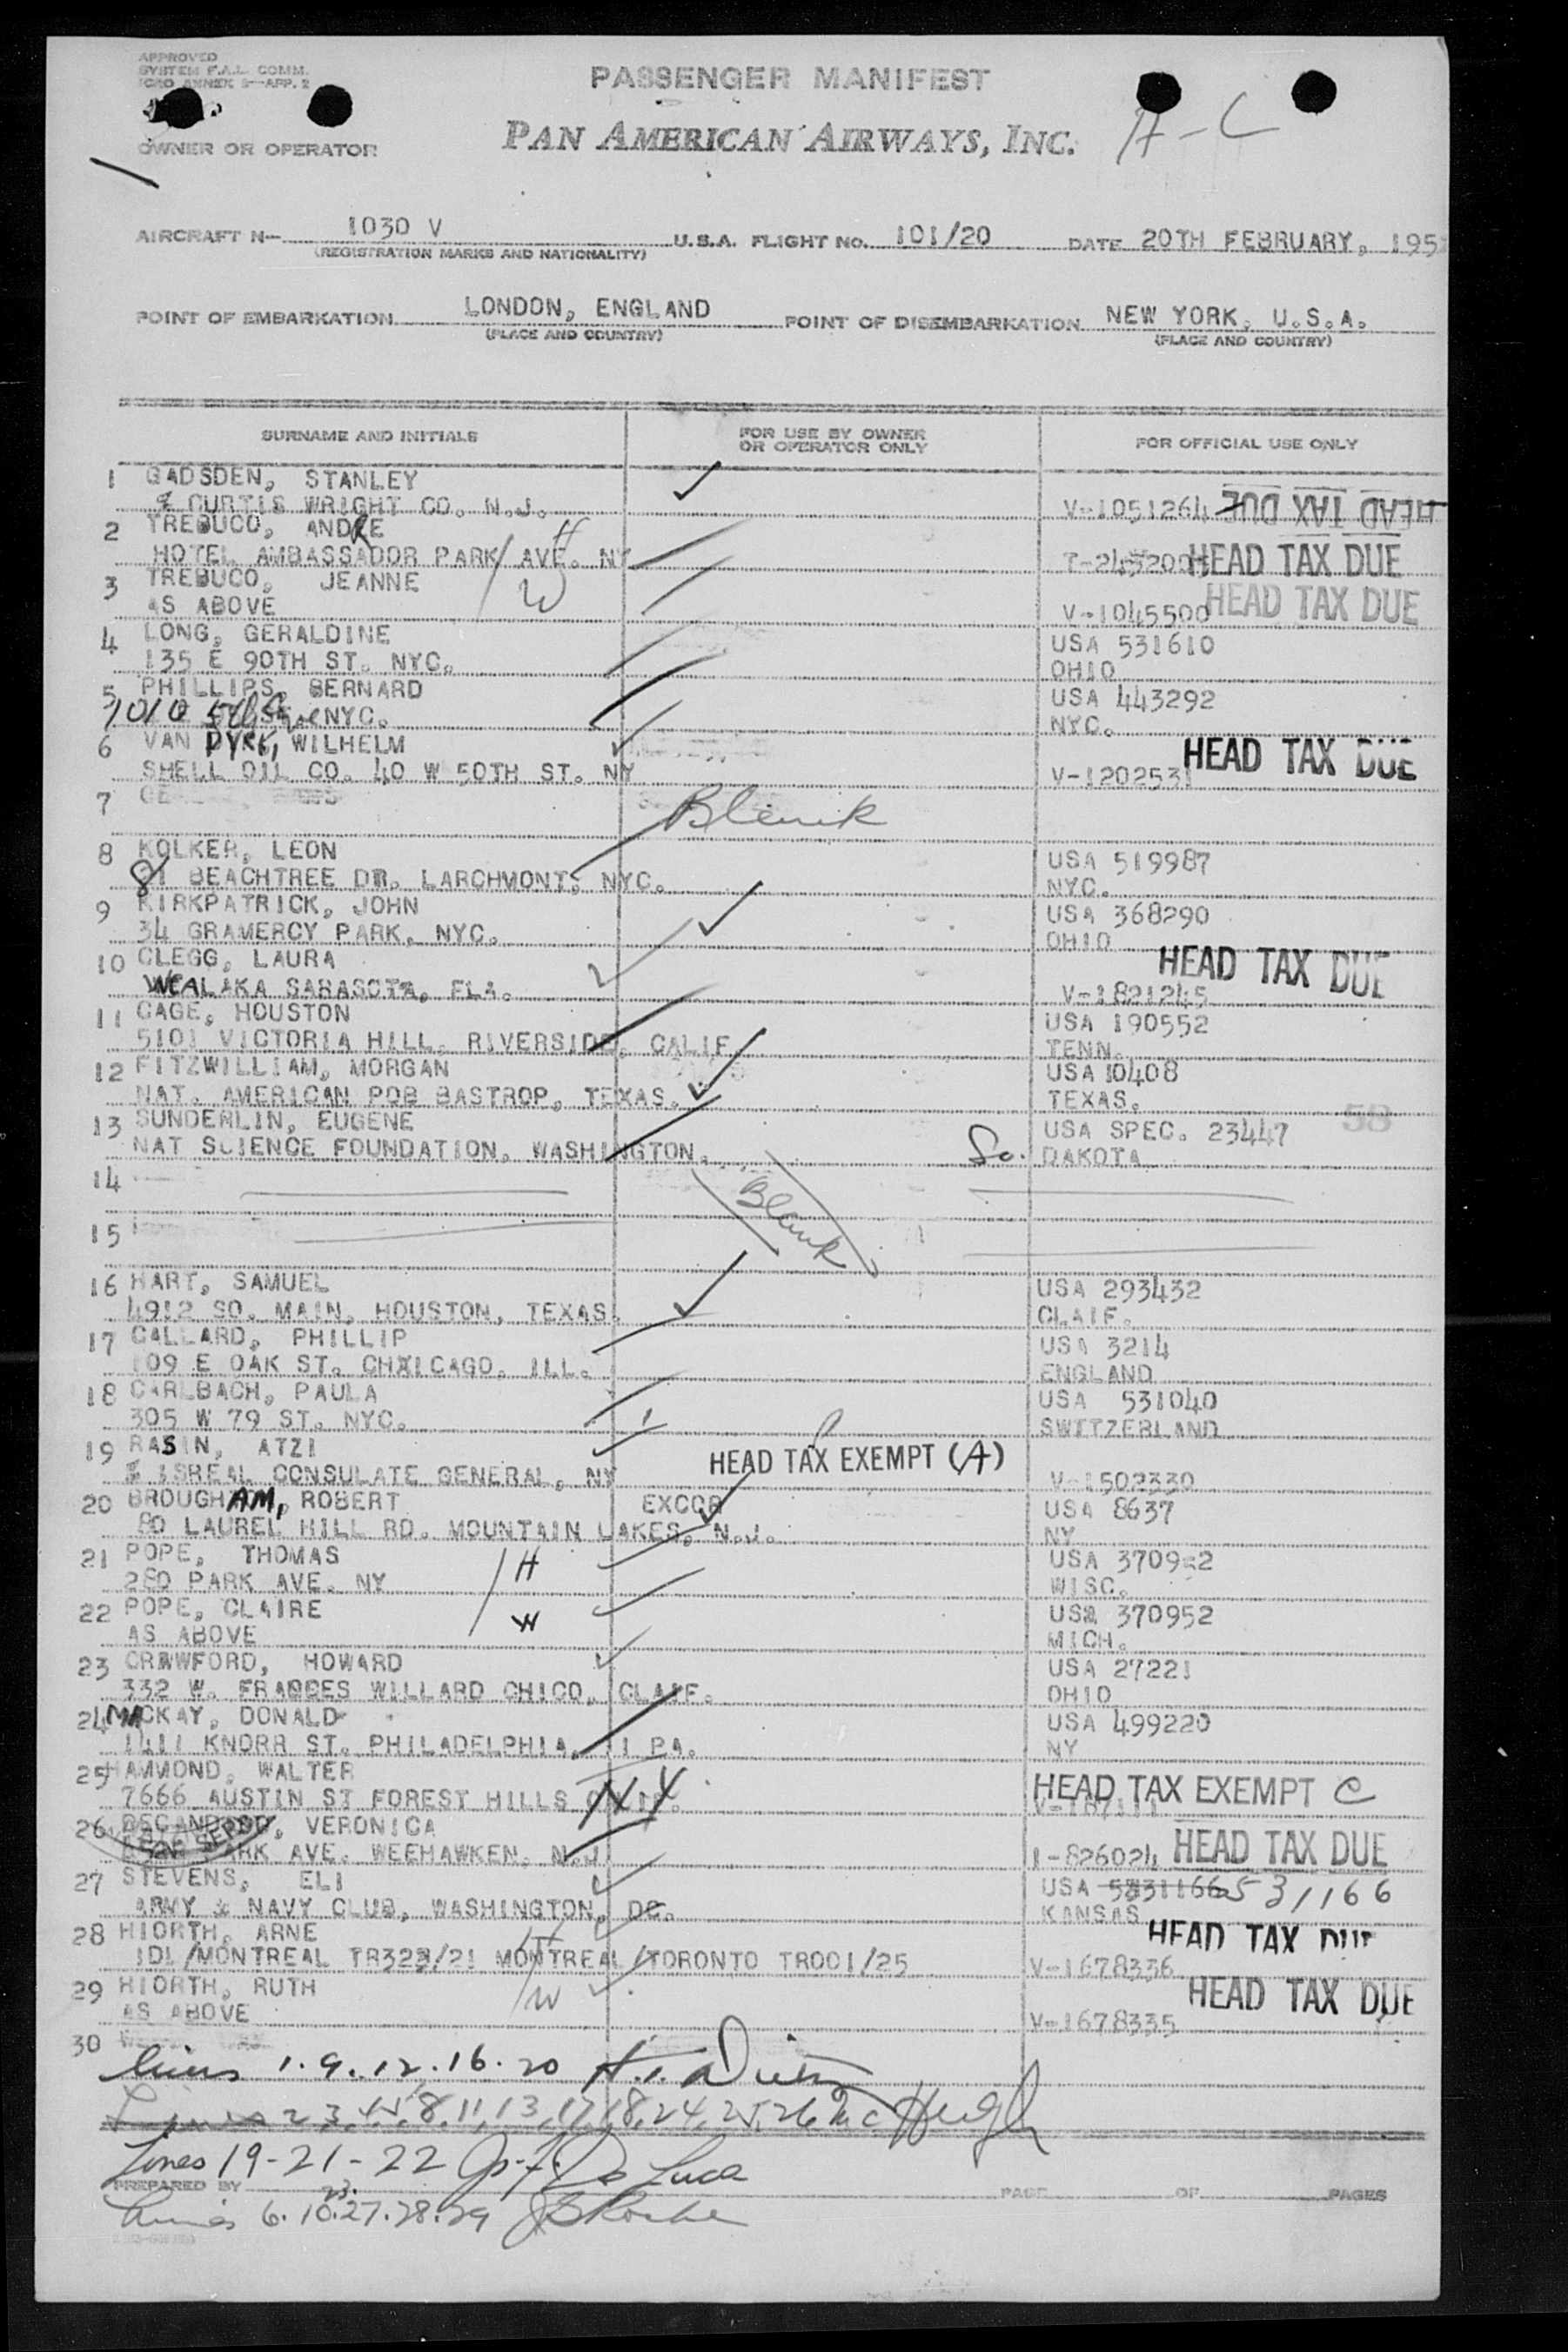 APPROVED
SYSTEM F.A.L. COMM.
ICAO ANNEX 9—APP. 2
PASSENGER MANIFEST
A-C
OWNER OR OPERATOR
PAN AMERICAN AIRWAYS, INC.
AIRCRAFT N— 1030 V U.S.A. FLIGHT NO. 101/20 DATE 20TH FEBRUARY, 195
(REGISTRATION MARKS AND NATIONALITY)
POINT OF EMBARKATION LONDON, ENGLAND POINT OF DISEMBARKATION NEW YORK, U.S.A.
(PLACE AND COUNTRY) (PLACE AND COUNTRY)
SURNAME AND INITIALS FOR USE BY OWNER OR OPERATOR ONLY FOR OFFICIAL USE ONLY
1 GADSDEN, STANLEY
% CURTIS WRIGHT CO. N.J. V-1051264 HEAD TAX DUE
2 TREBUCO, ANDRE H
HOTEL AMBASSADOR PARK AVE. NY HEAD TAX DUE
3 TREBUCO, JEANNE W
AS ABOVE V-1045500 HEAD TAX DUE
4 LONG, GERALDINE USA 531610
135 E 90TH ST. NYC. OHIO
5 PHILLIPS, BERNARD USA 443292
1010 5th Ave NYC. NYC.
6 VAN DYKE, WILHELM
SHELL OIL CO. 40 W 50TH ST. NY V-1202531 HEAD TAX DUE
7 Blank
8 KOLKER, LEON USA 519987
81 BEACHTREE DR. LARCHMONT, NYC. NYC.
9 KIRKPATRICK, JOHN USA 368290
34 GRAMERCY PARK, NYC. OHIO
10 CLEGG, LAURA HEAD TAX DUE
WEALAKA SARASOTA, FLA. V-1821245
11 CAGE, HOUSTON USA 190552
5101 VICTORIA HILL, RIVERSIDE, CALIF TENN.
12 FITZWILLIAM, MORGAN USA 10408
NAT. AMERICAN POB BASTROP, TEXAS. TEXAS.
13 SUNDERLIN, EUGENE USA SPEC. 23447 58
NAT SCIENCE FOUNDATION, WASHINGTON. So. DAKOTA
14
Blank
15
16 HART, SAMUEL USA 293432
4912 SO. MAIN, HOUSTON, TEXAS. CLAIF.
17 CALLARD, PHILLIP USA 3214
109 E OAK ST. CHXICAGO, ILL. ENGLAND
18 CARLBACH, PAULA USA 531040
305 W 79 ST. NYC. SWITZERLAND
19 RASIN, ATZI
% ISREAL CONSULATE GENERAL, NY HEAD TAX EXEMPT (A) V-1502330
20 BROUGHAM, ROBERT EXCOR USA 8637
80 LAUREL HILL RD. MOUNTAIN LAKES, N.J. NY
21 POPE, THOMAS H
280 PARK AVE. NY WISC.
22 POPE, CLAIRE W USA 370952
AS ABOVE MICH.
23 CRAWFORD, HOWARD USA 27221
332 W. WILLARD CHICO, CLAIF. OHIO
24 MACKAY, DONALD USA 499220
1411 KNORR ST. PHILADELPHIA, 11 PA. NY
25 HAMMOND, WALTER
7666 AUSTIN ST FOREST HILLS NY. HEAD TAX EXEMPT C
26 VERONICA
PARK AVE. WEEHAWKEN, N.J 1-826024 HEAD TAX DUE
27 STEVENS, ELI USA 531166
ARMY & NAVY CLUB, WASHINGTON, DC. KANSAS
28 HIORTH, ARNE H HEAD TAX DUE
IDL/MONTREAL TR323/21 MONTREAL/TORONTO TR001/25 V-1678336
29 HIORTH, RUTH W HEAD TAX DUE
AS ABOVE V-1678335
30
Lines 1. 9. 12. 16. 20
2 3, 4, 5, 8, 11, 13, 17, 18, 24, 25, 26 McHugh
Lines 19-21-22 De Luca
PREPARED BY PAGE OF PAGES
Lines 6. 10. 23. 27. 28. 29